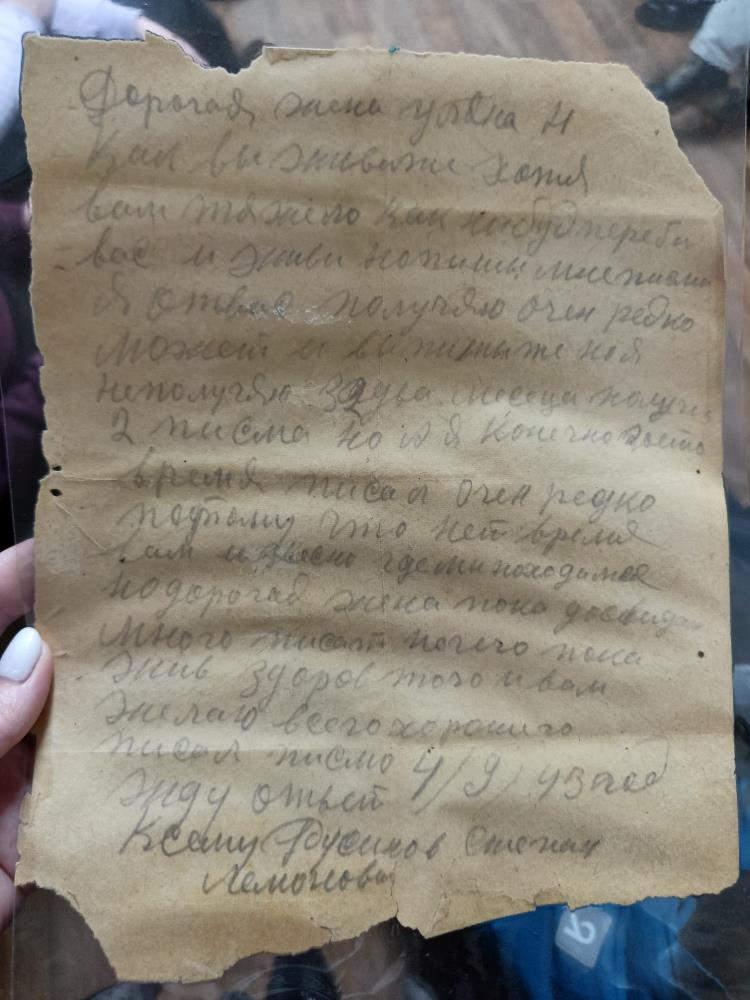 Дорогая жена уляна Н
Как вы живете хотя
вам тяжело как нибуд переби
вас и живи напиши мне писма
Я от вас получяю очен редко
может и вы пишыте но я
неполучяю за два месеца получи
2 писма но и я конечно
время писат очен редко
потому что нет время
вам извесно где мы находимся
но дорогая жена пока досвидан
много писат нечего пока
жив здоров того и вам
желаю всего хорошего
писал писмо 4/9/43 год
жду ответ
Ксему Фусинов Степан